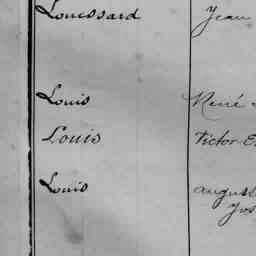 Louessard Jean
Louis René
Louis Victor
Louis August
Jos